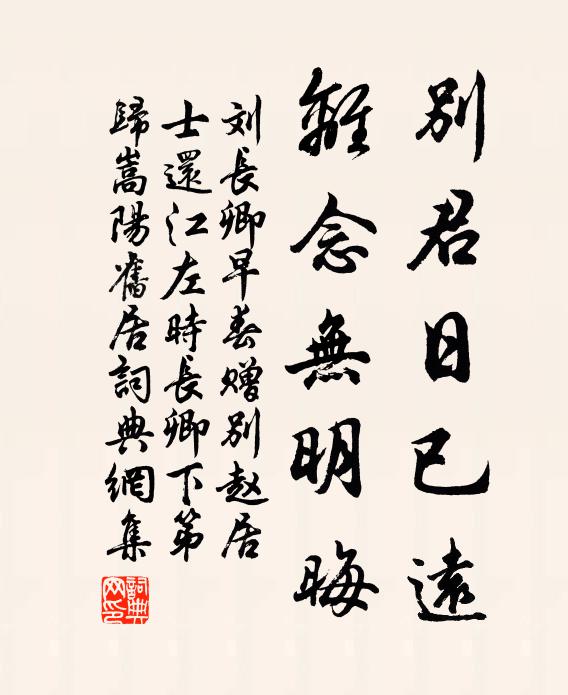 別君日已遠
離念無明晦
刘長卿早春赠别赵居
士還江左時長卿下第
歸嵩陽舊居詞典網集
詞典
网印